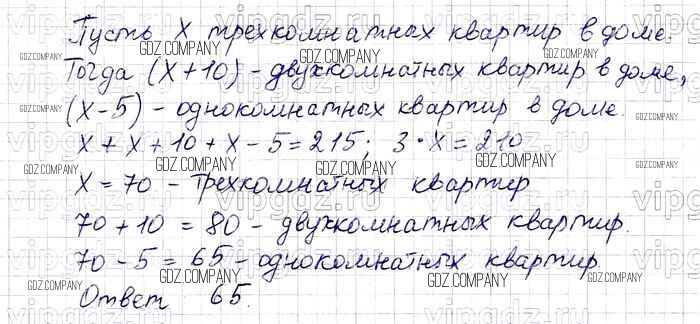 Пусть X трехкомнатных квартир в доме.
GDZ.COMPANY GDZ.COMPANY GDZ.COMPANY
Тогда (X+10) - двухкомнатных квартир в доме,
GDZ.COMPANY GDZ.COMPANY
(X-5) - однокомнатных квартир в доме.
X + X + 10 + X - 5 = 215; 3 · X = 210
GDZ.COMPANY GDZ.COMPANY GDZ.COMPANY
X = 70 - трехкомнатных квартир
GDZ.COMPANY GDZ.COMPANY
70 + 10 = 80 - двухкомнатных квартир.
GDZ.COMPANY GDZ.COMPANY GDZ.COMPANY
70 - 5 = 65 - однокомнатных квартир.
GDZ.COMPANY GDZ.COMPANY
Ответ 65.